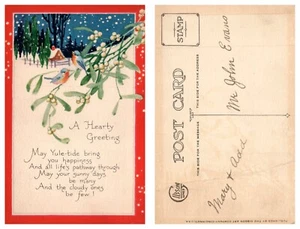 A Hearty
Greeting
May Yule-tide bring
you happiness
And all life's pathway through
May your sunny days
be many
And the cloudy lines
be few!
PLACE
STAMP
HERE
POST CARD
THIS SIDE FOR THE MESSAGE
THIS SIDE FOR THE ADDRESS
Mr John Evans
Mary & Dad